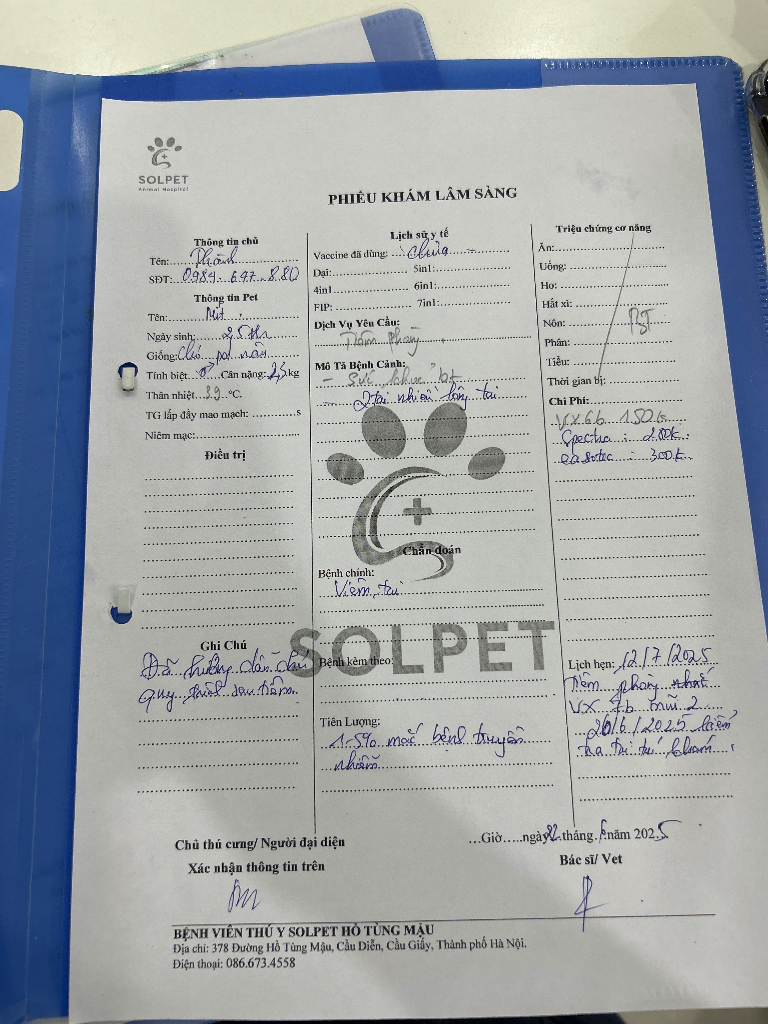 SOLPET
Animal Hospital
PHIẾU KHÁM LÂM SÀNG
Thông tin chủ
Tên: Thành
SĐT: 0984.647.880
Thông tin Pet
Tên: Mít
Ngày sinh: 2,5 th
Giống: Chó pol nâu
Tính biệt ♂ Cân nặng: 2,5 kg
Thân nhiệt 39 °C.
TG lấp đầy mao mạch: s
Niêm mạc:
Điều trị
Ghi Chú
Đã hướng dẫn chú
quy trình sau tiêm.
Lịch sử y tế
Vaccine đã dùng: chưa
Dại: 5in1:
4in1 6in1:
FIP: 7in1:
Dịch Vụ Yêu Cầu:
Tiêm phòng
Mô Tả Bệnh Cảnh:
- Sức khoẻ bt
- 2 tai nhiều lông tai
Chẩn đoán
Bệnh chính:
Viêm tai
SOLPET
Bệnh kèm theo:
Tiên Lượng:
1-5% mắc bệnh truyền
nhiễm
Triệu chứng cơ năng
Ăn:
Uống:
Ho:
Hắt xì:
Nôn: BT
Phân:
Tiểu:
Thời gian bị:
Chi Phí:
VX6b 150k
Spectra: 280k
easotic: 300k
Lịch hẹn: 12/7/2025
Tiêm phòng nhắc
VX 7b mũi 2
26/6/2025 kiểm
tra tai tái khám.
Chủ thú cưng/ Người đại diện
Xác nhận thông tin trên
...Giờ.....ngày 22 tháng 6 năm 2025
Bác sĩ/ Vet
BỆNH VIÊN THÚ Y SOLPET HỒ TÙNG MẬU
Địa chỉ: 378 Đường Hồ Tùng Mậu, Cầu Diễn, Cầu Giấy, Thành phố Hà Nội.
Điện thoại: 086.673.4558